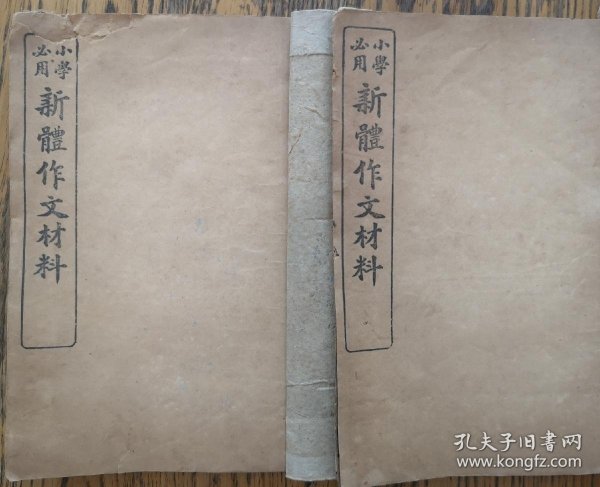 小學
必用
新體作文材料
小學
必用
新體作文材料
孔夫子旧書网
www.kongfz.com